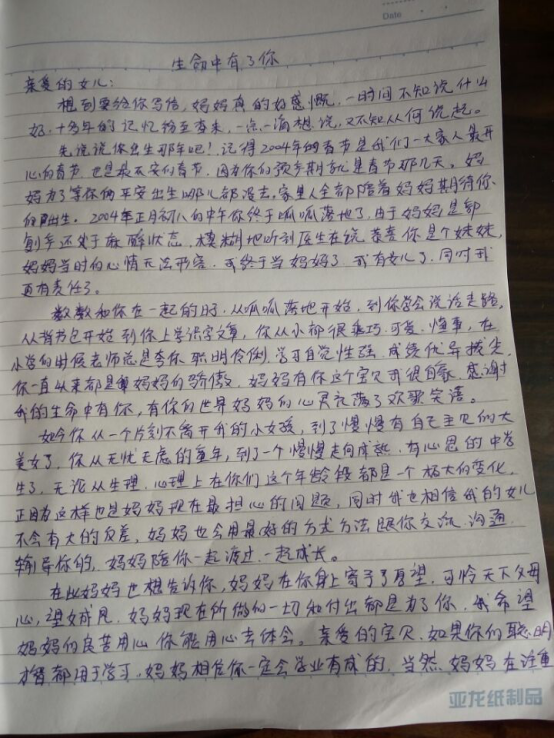 Date
生命中有了你
亲爱的女儿：
想到要给你写信，妈妈真的好感慨，一时间不知说什么
好，十多年的记忆纷至沓来，一点一滴想说，又不知从何说起。
先说说你出生那年吧！记得2004年的春节是我们一大家人最开
心的春节，也是最不安的春节，因为你的预产期就是春节那几天。妈
妈为了等你的平安出生哪儿都没去，家里人全部陪着妈妈期待你
的出生。2004年正月初八的中午你终于呱呱落地了，由于妈妈是剖
刚手还处于麻醉状态，模糊地听到医生在说恭喜你是个妹妹，
妈妈当时的心情无法形容，我终于当妈妈了，我有女儿了，同时我
更有责任了。
数数和你在一起的日子，从呱呱落地开始，到你学会说话走路，
从背书包开始到你上学识字文章，你从小都很乖巧、可爱、懂事，在
小学的时候老师总是夸你聪明伶俐，学习自觉性强，成绩优异拔尖，
你一直以来都是妈妈的骄傲，妈妈有你这个宝贝可很自豪，感谢
我的生命中有你，有你的世界妈妈的心灵充满了欢歌笑语。
如今你从一个片刻不离开我的小女孩，到了慢慢有自己主见的大
美女了，你从无忧无虑的童年，到了一个慢慢走向成熟，有心思的中学
生了，无论从生理、心理上在你们这个年龄段都是一个极大的变化，
正因为这样也是妈妈现在最担心的问题，同时我也相信我的女儿
不会有大的反差，妈妈也会用最好的方式方法跟你交流、沟通
辅导你的，妈妈陪你一起渡过，一起成长。
在此妈妈也想告诉你，妈妈在你身上寄予了厚望，可怜天下父母
心，望女成凤，妈妈现在所做的一切和付出都是为了你，我希望
妈妈的良苦用心你能用心去体会。亲爱的宝贝，如果你们聪明
才智都用于学习，妈妈相信你一定会学业有成的，当然，妈妈在注重
亚龙纸制品